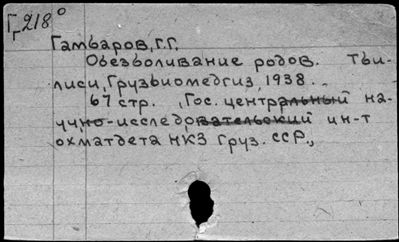 Гг218°
Гамбаров, Г.Г.
Обезболивание родов. Тби-
лиси, Грузбиомедгиз, 1938.
67 стр. , Гос. центральный на-
учно-исследовательский ин-т
охматдета НКЗ Груз. ССР.,